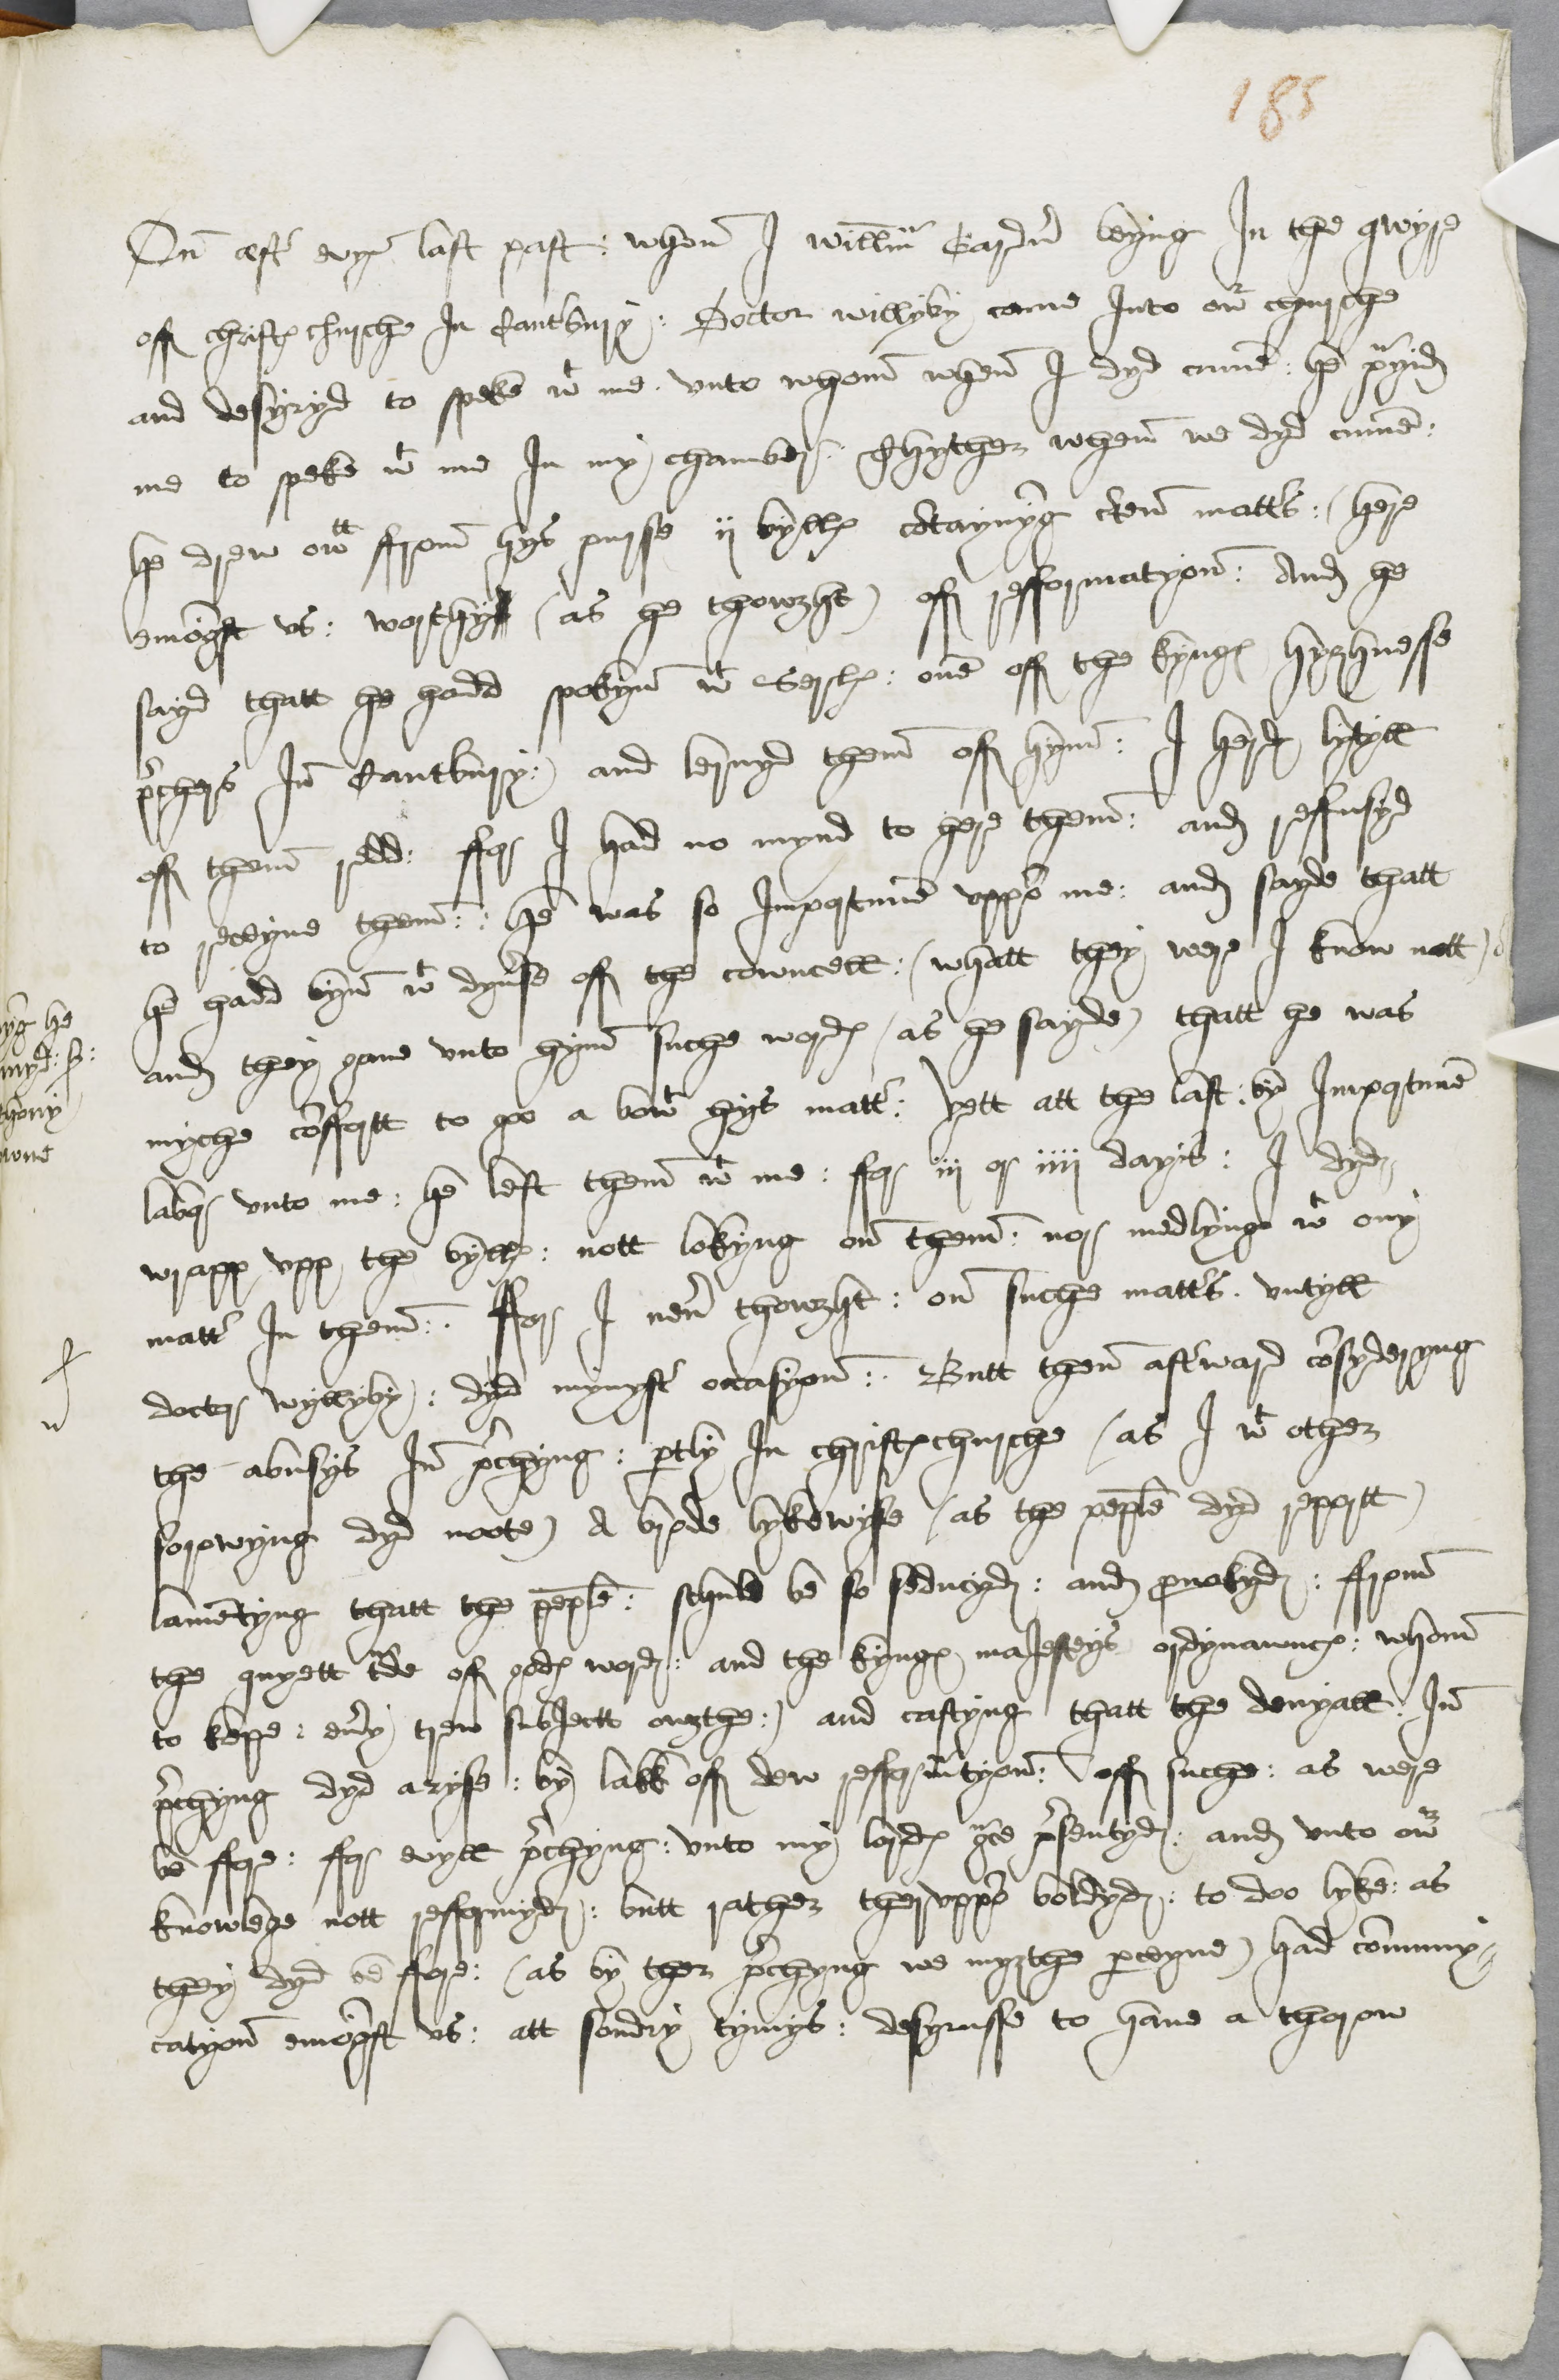 185
On est evyn last past : when I willm Gardn beyng In the qwyre
off christchurche In Cantbury : Doctor willyby came Into owr churche
and desyryd to speke wt me . unto whom when I dyd cume : he prayid
me to speke wt me In my chamber : Thyther when we dyd cume :
he drew owtt from hys purse ii bylles cotaynyg cten matts : ( here
emogst us : worthy ( as he thowzht ) off refformatyon : And he
sayd thatt he hadd spokyn wt Serles : one off the kynges hyzhnesse
prchers In Cantbury : ) and lernyd them off hym : I herd lytyll
off them redd : ffor I had no mynd to here them : and reffusyd
to receyve them : : he was so Importune uppo me : and sayde thatt
he hadd byn wt dyvse off the cowncell : ( whatt they were I know nott )
and they gave unto hym suche wordes ( as he sayde ) thatt he was
myche cofortt to goo a bowt hys matt : Yett att the last : by Importune
labor unto me : he left them wt me : ffor iii or iiii dayis : I dyd
wrapp upp the bylles : nott lokyng on them : nor medlynge wt ony
matt In them : . ffor I nev thowzht : on suche matts . untyll
doctor wyllyby : dyd mynyst occasyon : . Butt then aftward cosyderyng
the abusys In prchyng : ptly In christchurche ( as I wt other
sorowyng dyd noote ) A brode lykewyse ( as the peple dyd reportt )
lametyng thatt the peple : schuld be so seducyd : and provokyd : from
the quyett trde off godes word : and the kynges maJesteys ordynawnces : whom
to kepe : evy trew subJectt owzthe : ) and castyng thatt the denyall : In
prchyng dyd aryse : by lakk off dew refformtyon : off suche : as were
be ffore : ffor evyll prchyng : unto my lordes grce prsentyd : and unto owr
knowlege nott refformyd : butt rather theruppo boldyd : to doo lyke : as
they dyd be ffore : ( as by ther prchyng we myzthe pceyve ) had commuy
catyon emogst us : att sondry tymys : desyrusse to have a thorow